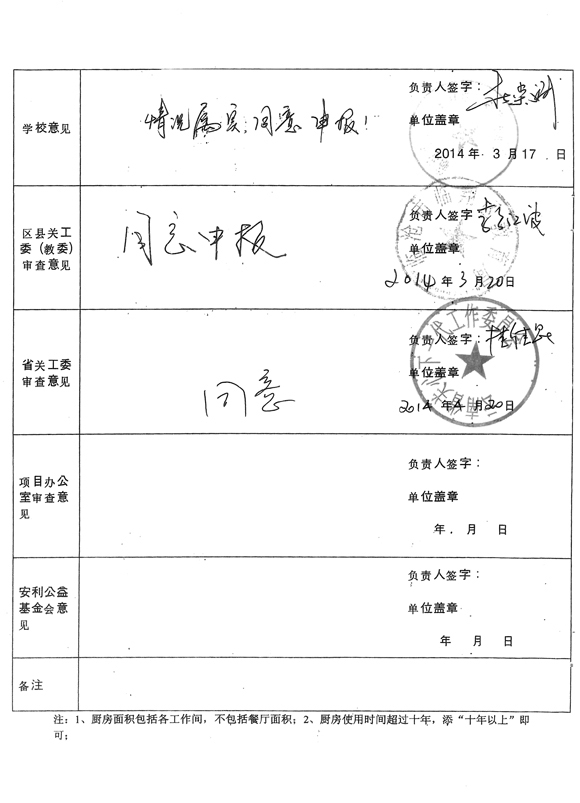 学校意见
情况属实,同意申报!
负责人签字:
单位盖章
2014年 3月17 日
区县关工
委(教委)
审查意见
同意申报
负责人签字
单位盖章
2014年3月20日
省关工委
审查意见
同意
负责人签字:
单位盖章
2014年4月20日
项目办公
室审查意
见
负责人签字:
单位盖章
年 . 月 日
安利公益
基金会意
见
负责人签字:
单位盖章
年 月 日
备注
注:1、厨房面积包括各工作间,不包括餐厅面积;2、厨房使用时间超过十年,添“十年以上”即
可;